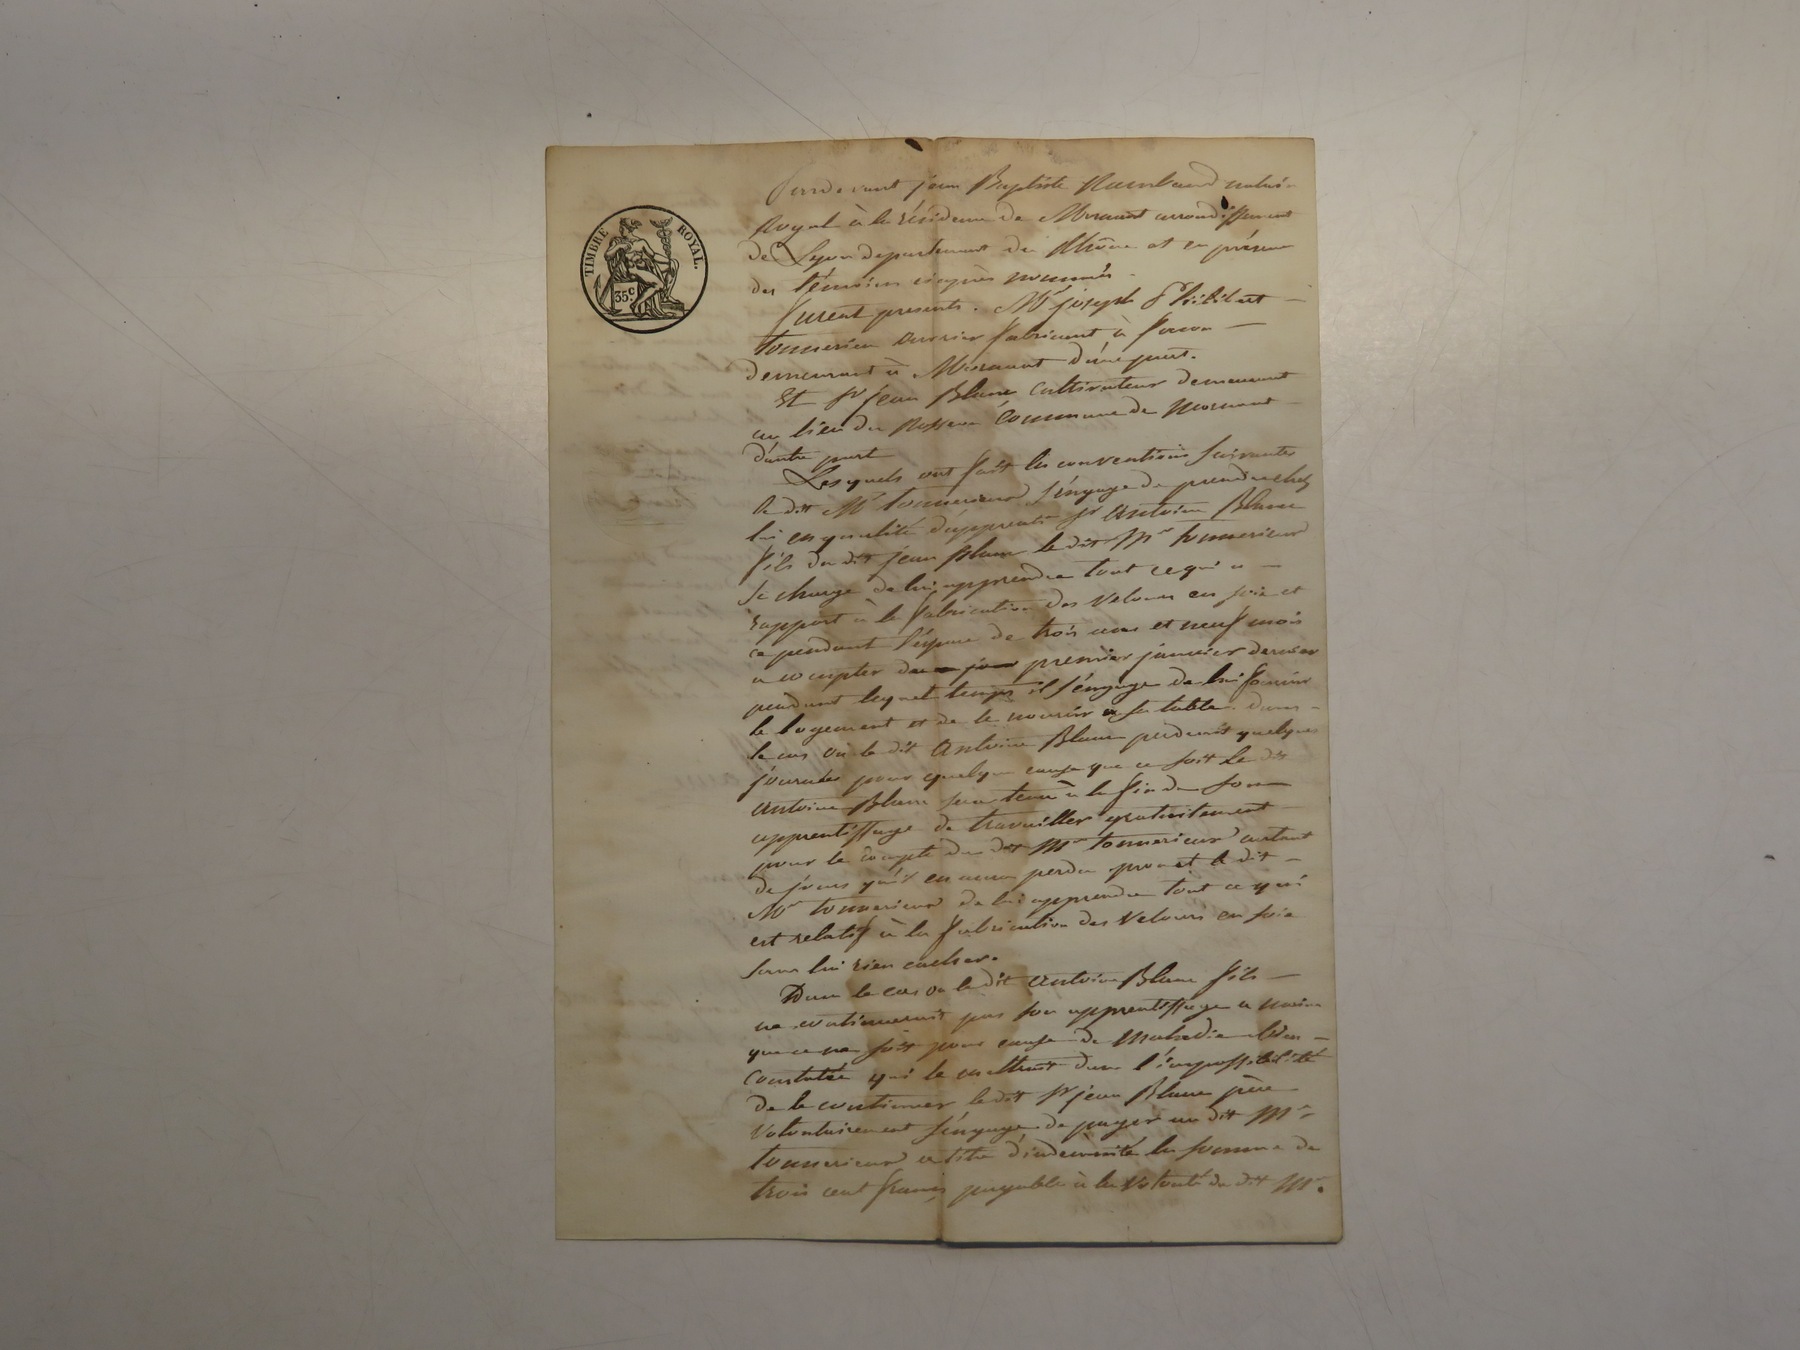 TIMBRE ROYAL.
35c
Pardevant jean Baptiste Rambaud notaire
Royal à la résidence de Mornant arrondissement
de Lyon departement du Rhône et en présence
des témoins ci après nommés.
furent presents. Mr joseph Philibert
tonnerieu ouvrier fabricant à
demeurant à Mornant d'une part.
Et Sr jean Blanc cultivateur demeurant
au lieu du Rosseon Commune de Mornant
d'autre part
Lesquels ont fait les conventions suivantes
le dit Mr tonnerieux s'engage de prendre chez
lui en qualité d'apprenti Sr Antoine Blanc
fils du dit jean Blanc le dit Mr tonnerieux
se charge de lui apprendre tout ce qui a
rapport à la fabrication des velours en soie et
ce pendant l'espace de trois ans et neuf mois
a compter du jour premier janvier dernier
pendant lequel temps il s'engage de lui fournir
le logement et de le nourrir a sa table. Dans
le cas où le dit Antoine Blanc perderoit quelques
journées pour quelque cause que ce soit Le dit
Antoine Blanc sera tenu à la fin de son
apprentissage de travailler gratuitement
pour le compte du dit Mr tonnerieux autant
de jours qu'il en aura perdu. promet le dit
Mr tonnerieux de lui apprendre tout ce qui
est relatif à la fabrication des Velours en soie
sans lui rien cacher.
Dans le cas ou le dit Antoine Blanc fils
ne continueroit pas son apprentissage a moins
que ce ne soit pour cause de Maladie bien
Constatée qui le mettroit dans l'impossibilité
de le continuer le dit Sr jean Blanc père
Volontairement s'engage de payer au dit Mr
tonnerieux a titre d'indemnité la somme de
trois cent francs payable à la Volonté du dit Mr.